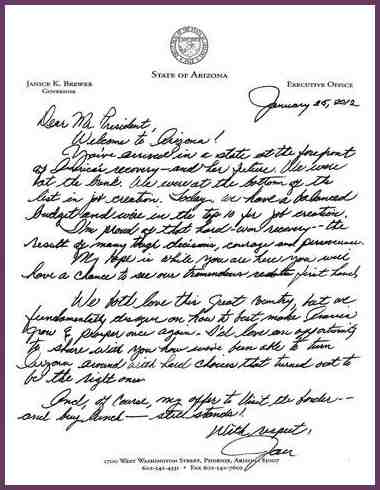 STATE OF ARIZONA
JANICE K. BREWER
GOVERNOR
EXECUTIVE OFFICE
January 25, 2012
Dear Mr. President,
Welcome to Arizona!
You've arrived in a state at the forefront
of America's recovery—and her future. We were
the bank. We were at the bottom of the
list in job creation. Today, we have a balanced
budget and we're in the top 10 for job creation.
I'm proud of that hard-won recovery—the
result of many tough decisions, courage and perseverance.
My hope is while you are here you will
have a chance to see our tremendous results first hand.
We both love this Great Country, but we
fundamentally disagree on how to best make America
grow & prosper once again. I'd love an opportunity
to share with you how we've been able to turn
Arizona around with hard choices that turned out to
be the right ones.
And, of course, my offer to visit the border—
and buy lunch—still stands!
With respect,
Jan
1700 WEST WASHINGTON STREET, PHOENIX, ARIZONA 85007
602-542-4331 • FAX 602-542-7602